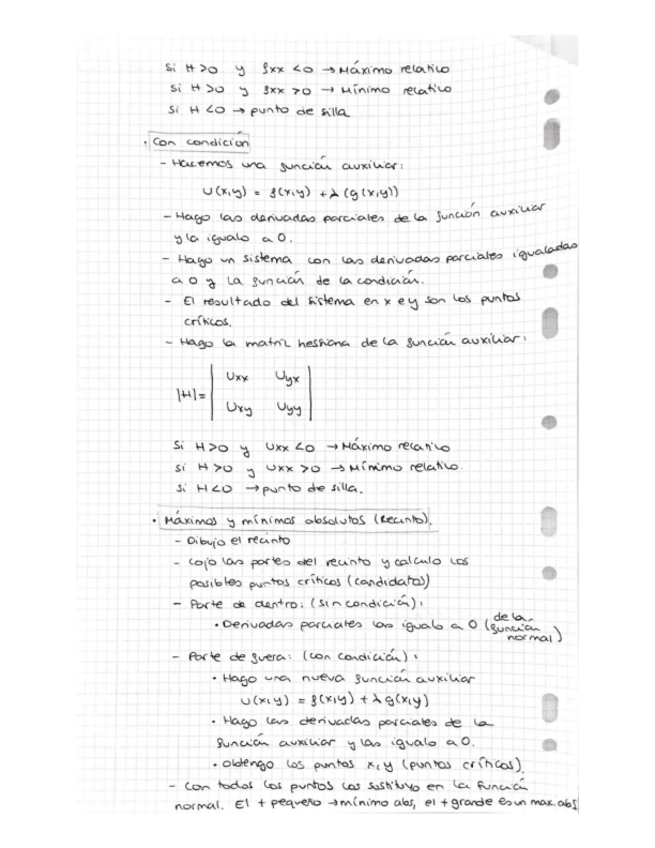 Si H>0 y fxx <0 → Máximo relativo
Si H>0 y fxx >0 → Mínimo relativo
Si H<0 → punto de silla
· Con condición
- Hacemos una función auxiliar:
U(x,y) = f(x,y) + λ (g(x,y))
- Hago las derivadas parciales de la función auxiliar
y la igualo a 0.
- Hago un sistema con las derivadas parciales igualadas
a 0 y la función de la condición.
- El resultado del sistema en x e y son los puntos
críticos.
- Hago la matriz hessiana de la función auxiliar:
|H|= | Uxx Uyx |
| Uxy Uyy |
Si H>0 y Uxx <0 → Máximo relativo
si H>0 y Uxx >0 → Mínimo relativo.
si H<0 → punto de silla.
· Máximos y mínimos absolutos (Recinto).
- Dibujo el recinto
- cojo las partes del recinto y calculo los
posibles puntos críticos (candidatos)
- Parte de dentro: (sin condición):
· Derivadas parciales las igualo a 0 (de la función normal)
- Parte de fuera: (con condición):
· Hago una nueva función auxiliar
U(x,y) = f(x,y) + λ g(x,y)
· Hago las derivadas parciales de la
función auxiliar y las igualo a 0.
· obtengo los puntos x,y (puntos críticos).
- Con todos los puntos los sustituyo en la función
normal. El + pequeño → mínimo abs, el + grande es un max.abs